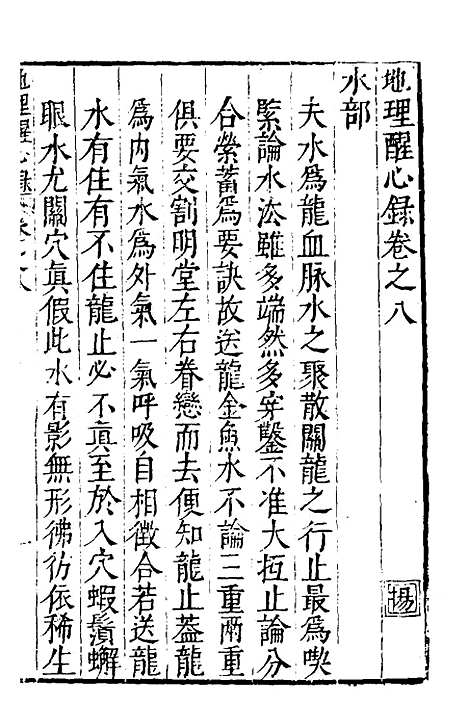 地理醒心録卷之八
水部
夫水爲龍血脉水之聚散關龍之行止最爲喫
緊論水法雖多端然多穿鑿不准大抵止論分
合縈蓄爲要訣故送龍金魚水不論三重兩重
俱要交割明堂左右眷戀而去便知龍止葢龍
爲内氣水爲外氣一氣呼吸自相徴合若送龍
水有住有不住龍止必不眞至於入穴蝦鬚蠏
眼水尤關穴眞假此水有影無形彿彷依稀生
地理醒心録 卷之八